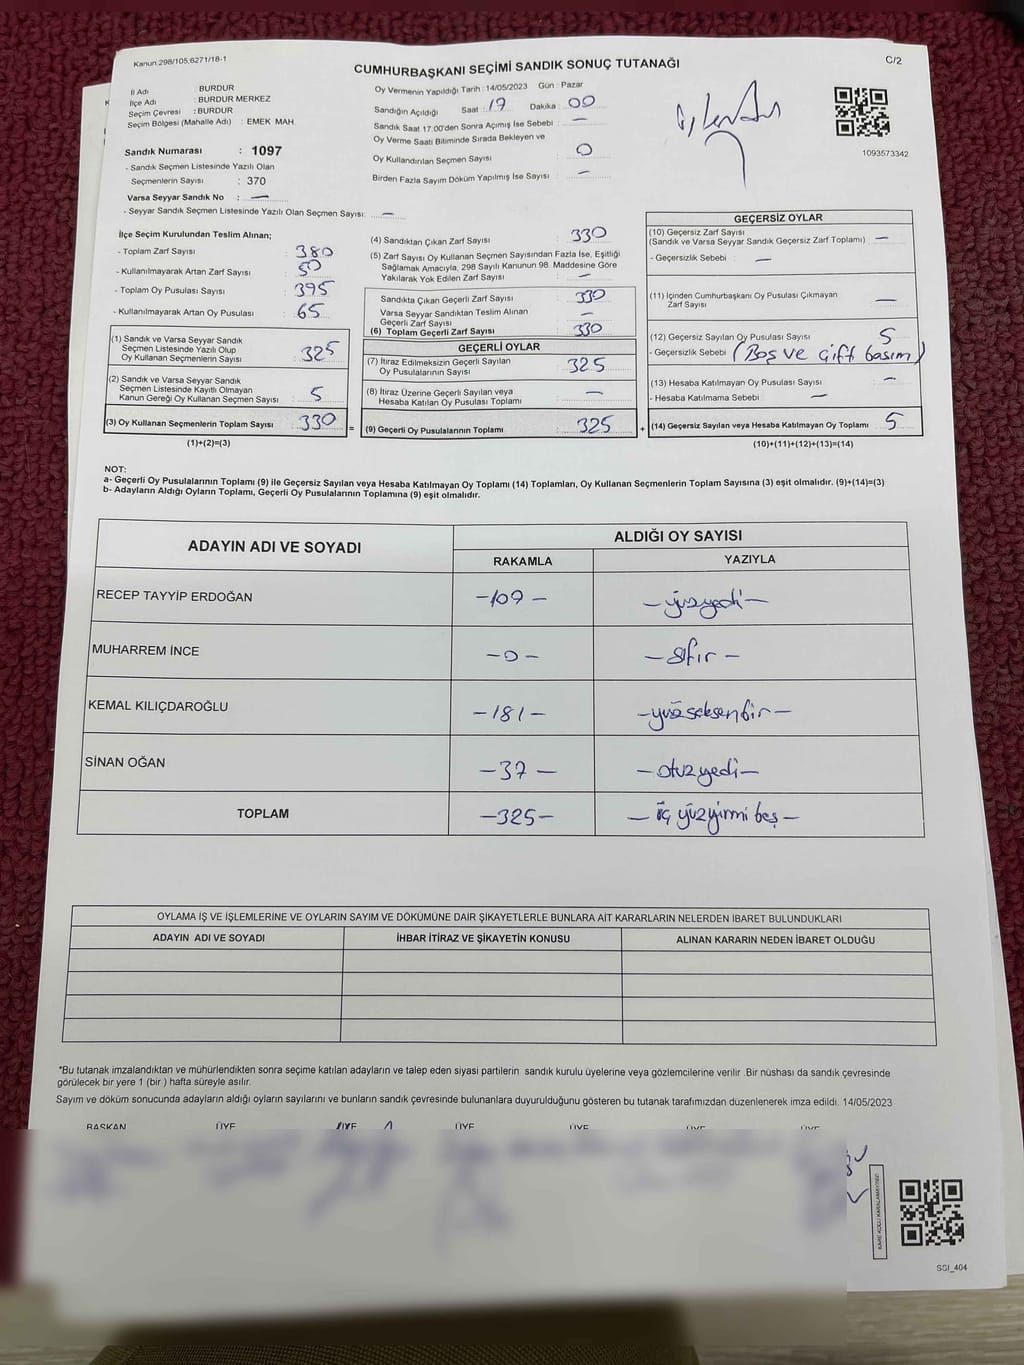 Kanun.298/105,6271/18-1
CUMHURBAŞKANI SEÇİMİ SANDIK SONUÇ TUTANAĞI
C/2
İl Adı : BURDUR
İlçe Adı : BURDUR MERKEZ
Seçim Çevresi : BURDUR
Seçim Bölgesi (Mahalle Adı) : EMEK MAH.
Sandık Numarası : 1097
- Sandık Seçmen Listesinde Yazılı Olan
Seçmenlerin Sayısı : 370
Varsa Seyyar Sandık No : —
- Seyyar Sandık Seçmen Listesinde Yazılı Olan Seçmen Sayısı: —
Oy Vermenin Yapıldığı Tarih : 14/05/2023 Gün : Pazar
Sandığın Açıldığı Saat : 17 Dakika : 00
Sandık Saat 17:00'den Sonra Açımış İse Sebebi : —
Oy Verme Saati Bitiminde Sırada Bekleyen ve
Oy Kullandırılan Seçmen Sayısı : 0
Birden Fazla Sayım Döküm Yapılmış İse Sayısı : —
1093573342
İlçe Seçim Kurulundan Teslim Alınan;
- Toplam Zarf Sayısı : 380
- Kullanılmayarak Artan Zarf Sayısı : 50
- Toplam Oy Pusulası Sayısı : 395
- Kullanılmayarak Artan Oy Pusulası : 65
(1) Sandık ve Varsa Seyyar Sandık
Seçmen Listesinde Yazılı Olup
Oy Kullanan Seçmenlerin Sayısı : 325
(2) Sandık ve Varsa Seyyar Sandık
Seçmen Listesinde Kayıtlı Olmayan
Kanun Gereği Oy Kullanan Seçmen Sayısı : 5
(3) Oy Kullanan Seçmenlerin Toplam Sayısı : 330 =
(1)+(2)=(3)
(4) Sandıktan Çıkan Zarf Sayısı : 330
(5) Zarf Sayısı Oy Kullanan Seçmen Sayısından Fazla İse, Eşitliği
Sağlamak Amacıyla, 298 Sayılı Kanunun 98. Maddesine Göre
Yakılarak Yok Edilen Zarf Sayısı : —
Sandıkta Çıkan Geçerli Zarf Sayısı : 330
Varsa Seyyar Sandıktan Teslim Alınan
Geçerli Zarf Sayısı : —
(6) Toplam Geçerli Zarf Sayısı : 330
GEÇERLİ OYLAR
(7) İtiraz Edilmeksizin Geçerli Sayılan
Oy Pusulalarının Sayısı : 325
(8) İtiraz Üzerine Geçerli Sayılan veya
Hesaba Katılan Oy Pusulası Toplamı : —
(9) Geçerli Oy Pusulalarının Toplamı : 325 +
GEÇERSİZ OYLAR
(10) Geçersiz Zarf Sayısı
(Sandık ve Varsa Seyyar Sandık Geçersiz Zarf Toplamı) : —
- Geçersizlik Sebebi : —
(11) İçinden Cumhurbaşkanı Oy Pusulası Çıkmayan
Zarf Sayısı : —
(12) Geçersiz Sayılan Oy Pusulası Sayısı : 5
- Geçersizlik Sebebi : (Boş ve Çift basım)
(13) Hesaba Katılmayan Oy Pusulası Sayısı : —
- Hesaba Katılmama Sebebi : —
(14) Geçersiz Sayılan veya Hesaba Katılmayan Oy Toplamı : 5
(10)+(11)+(12)+(13)=(14)
NOT:
a- Geçerli Oy Pusulalarının Toplamı (9) ile Geçersiz Sayılan veya Hesaba Katılmayan Oy Toplamı (14) Toplamları, Oy Kullanan Seçmenlerin Toplam Sayısına (3) eşit olmalıdır. (9)+(14)=(3)
b- Adayların Aldığı Oyların Toplamı, Geçerli Oy Pusulalarının Toplamına (9) eşit olmalıdır.
ADAYIN ADI VE SOYADI ALDIĞI OY SAYISI
RAKAMLA YAZIYLA
RECEP TAYYİP ERDOĞAN -107- -yüzyedi-
MUHARREM İNCE -0- -sıfır-
KEMAL KILIÇDAROĞLU -181- -yüzseksenbir-
SİNAN OĞAN -37- -otuzyedi-
TOPLAM -325- -üç yüzyirmi beş-
OYLAMA İŞ VE İŞLEMLERİNE VE OYLARIN SAYIM VE DÖKÜMÜNE DAİR ŞİKAYETLERLE BUNLARA AİT KARARLARIN NELERDEN İBARET BULUNDUKLARI
ADAYIN ADI VE SOYADI İHBAR İTİRAZ VE ŞİKAYETİN KONUSU ALINAN KARARIN NEDEN İBARET OLDUĞU
*Bu tutanak imzalandıktan ve mühürlendikten sonra seçime katılan adayların ve talep eden siyasi partilerin sandık kurulu üyelerine veya gözlemcilerine verilir .Bir nüshası da sandık çevresinde
görülecek bir yere 1 (bir ) hafta süreyle asılır.
Sayım ve döküm sonucunda adayların aldığı oyların sayılarını ve bunların sandık çevresinde bulunanlara duyurulduğunu gösteren bu tutanak tarafımızdan düzenlenerek imza edildi. 14/05/2023
BAŞKAN ÜYE ÜYE ÜYE ÜYE ÜYE ÜYE
KARE KODU KARALAMAYINIZ!
SSI_404